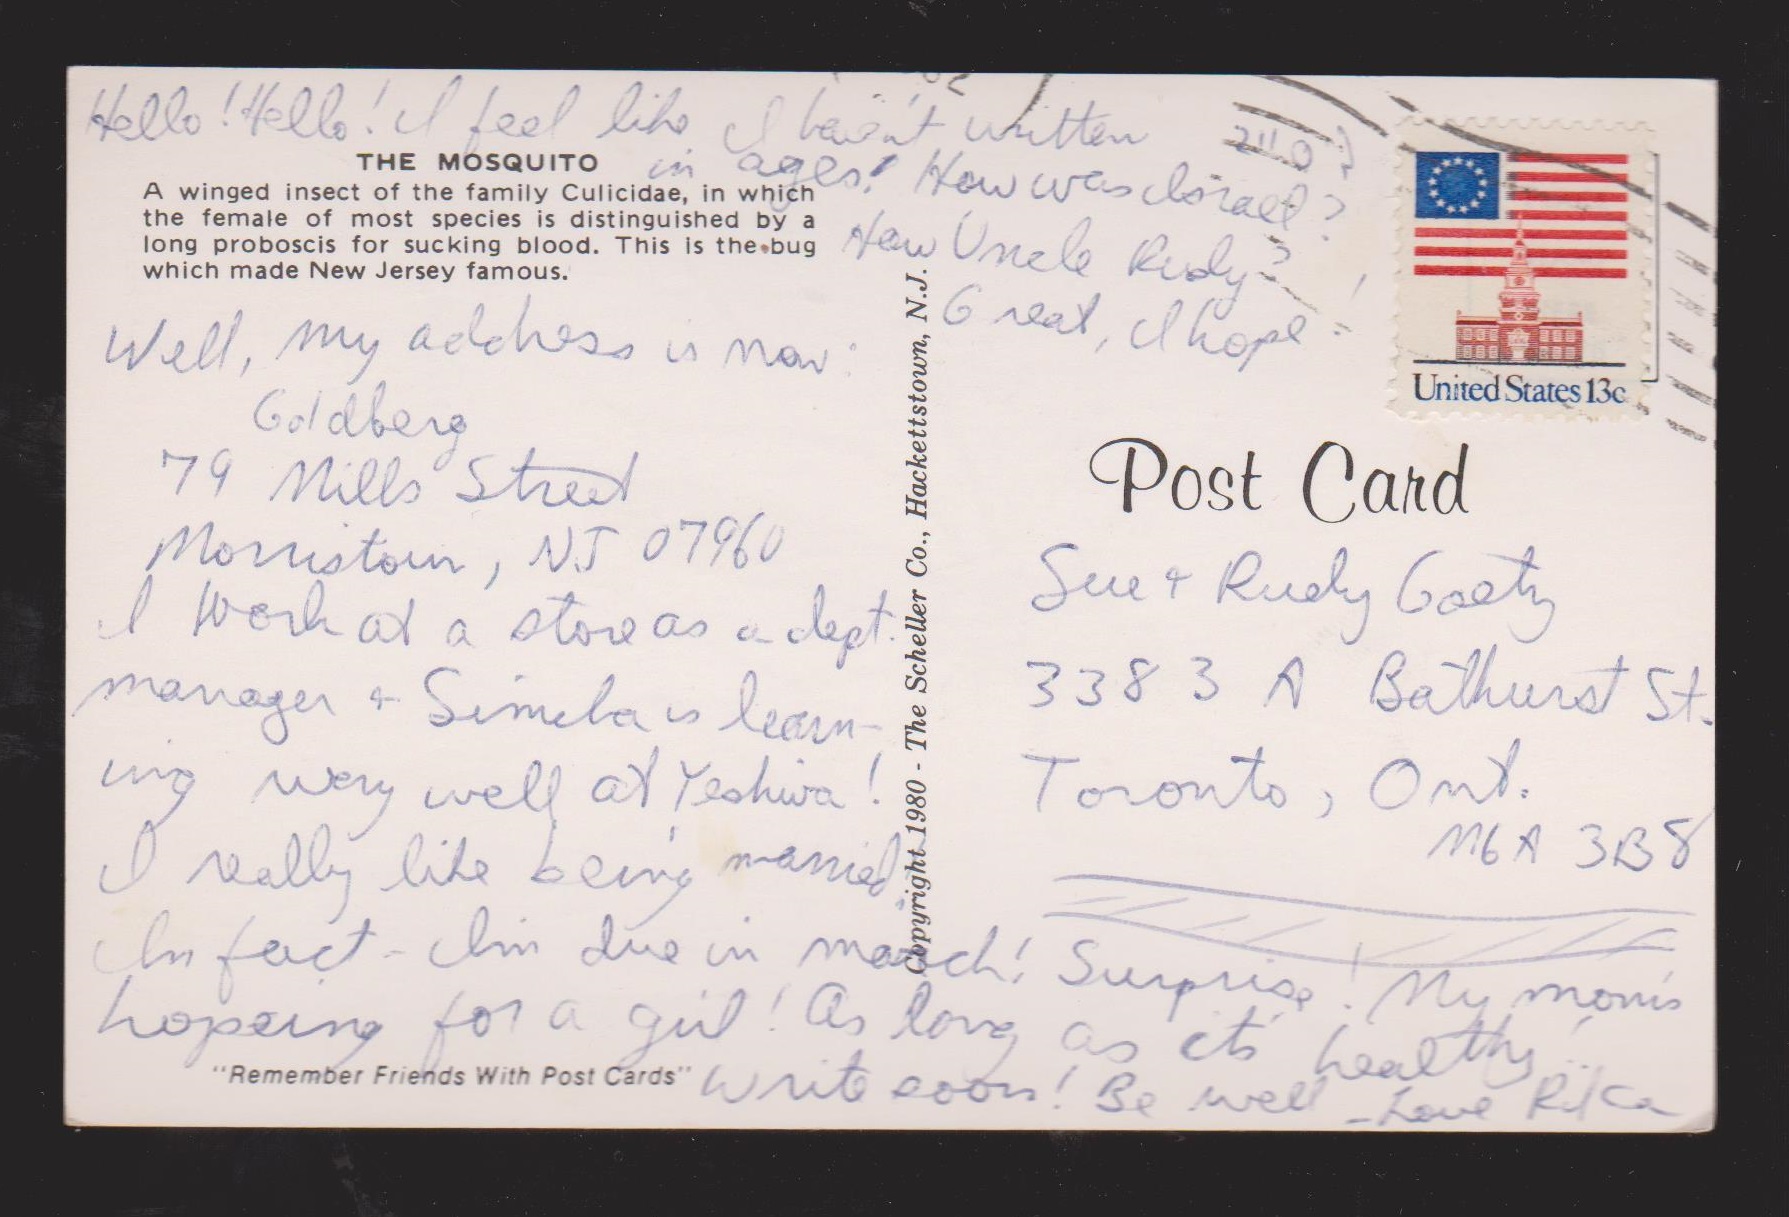 Hello! Hello! I feel like I haven't written
in ages! How was Israel?
How Uncle Rudy?
Great, I hope!
THE MOSQUITO
A winged insect of the family Culicidae, in which
the female of most species is distinguished by a
long proboscis for sucking blood. This is the bug
which made New Jersey famous.
Well, my address is now:
Goldberg
79 Mills Street
Morristown, NJ 07960
I work at a store as a dept.
manager + Simcha is learn-
ing very well at Yeshiva!
I really like being married.
In fact - I'm due in march! Surprise! My mom's
hopeing for a girl! As long as its healthy...
"Remember Friends With Post Cards"
Write soon! Be well
-Love Rifka
Copyright 1980 - The Scheller Co., Hackettstown, N.J.
United States 13c
Post Card
Sue + Rudy
3383 A Bathurst St.
Toronto, Ont.
M6A 3B8